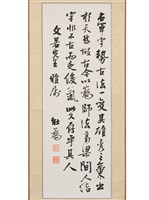 右軍字勢古法一變其雄秀之氣出
於天然故古今以為師法齊梁間人結
字非不古而乏俊氣此又存乎其人
先生雅